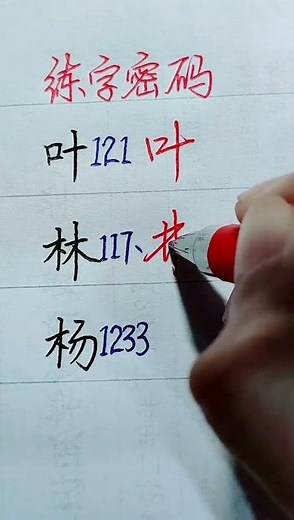 练字密码
叶121叶
林117、
杨1233